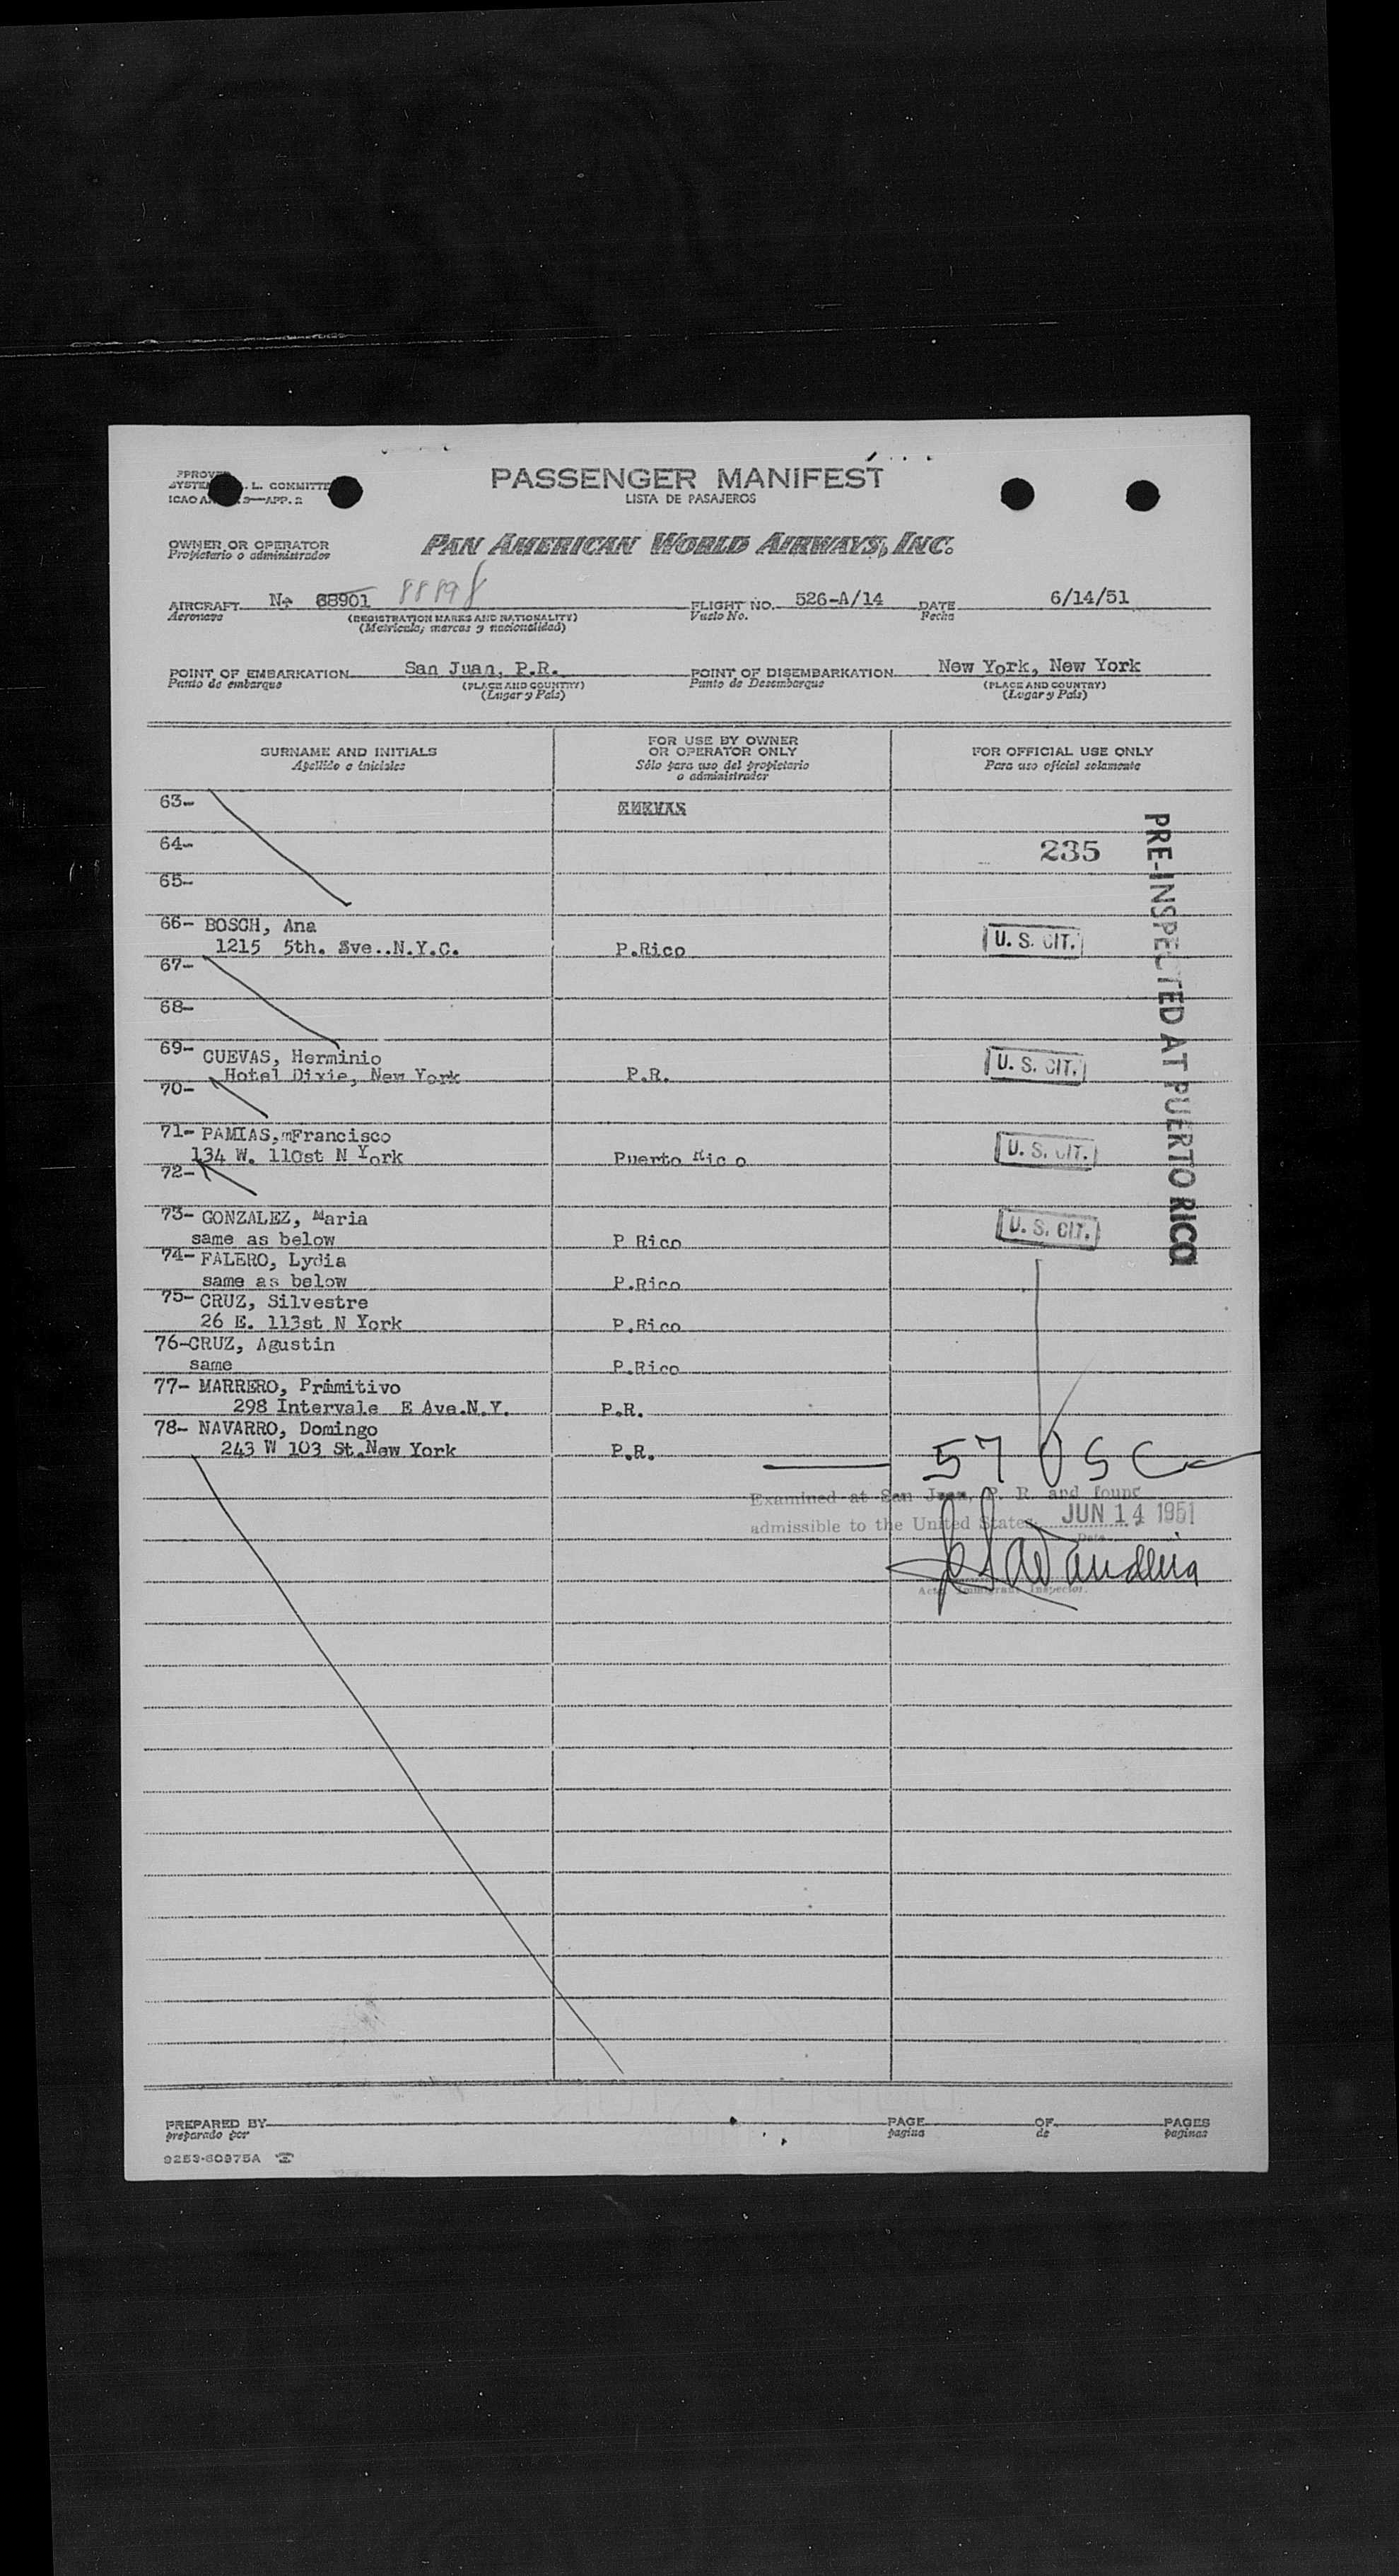 PASSENGER MANIFEST
LISTA DE PASAJEROS
L. COMMITTE
APP. 2
OWNER OR OPERATOR
Propietario o administrador
PAN AMERICAN WORLD AIRWAYS, INC.
AIRCRAFT N- 88901 88898 FLIGHT NO. 526-A/14 DATE 6/14/51
Aeronave (REGISTRATION MARKS AND NATIONALITY) Vuelo No. Fecha
(Matricula, marcas y nacionalidad)
POINT OF EMBARKATION San Juan, P.R. POINT OF DISEMBARKATION New York, New York
Punto de embarque (PLACE AND COUNTRY) Punto de Desembarque (PLACE AND COUNTRY)
(Lugar y Pais) (Lugar y Pais)
SURNAME AND INITIALS FOR USE BY OWNER OR OPERATOR ONLY FOR OFFICIAL USE ONLY
Apellido e iniciales Sólo para uso del propietario o administrador Para uso oficial solamente
63- CUEVAS
64- 235
65-
66- BOSCH, Ana
1215 5th. Ave..N.Y.C. P.Rico U. S. CIT.
67-
68-
69- CUEVAS, Herminio
Hotel Dixie, New York P.R. U. S. CIT.
70-
71- PAMIAS, Francisco
134 W. 110st N York Puerto Rico U. S. CIT.
72-
73- GONZALEZ, Maria
same as below P Rico U. S. CIT.
74- FALERO, Lydia
same as below P.Rico
75- CRUZ, Silvestre
26 E. 113st N York P.Rico
76-CRUZ, Agustin
same P.Rico
77- MARRERO, Primitivo
298 Intervale E Ave.N.Y. P.R.
78- NAVARRO, Domingo
243 W 103 St.New York P.R.
PRE-INSPECTED AT PUERTO RICO
57 USC
Examined at San Juan, P. R. and found
admissible to the United States JUN 14 1951
Date
Immigrant Inspector.
PREPARED BY PAGE OF PAGES
preparado por pagina de paginas
9253-60975A